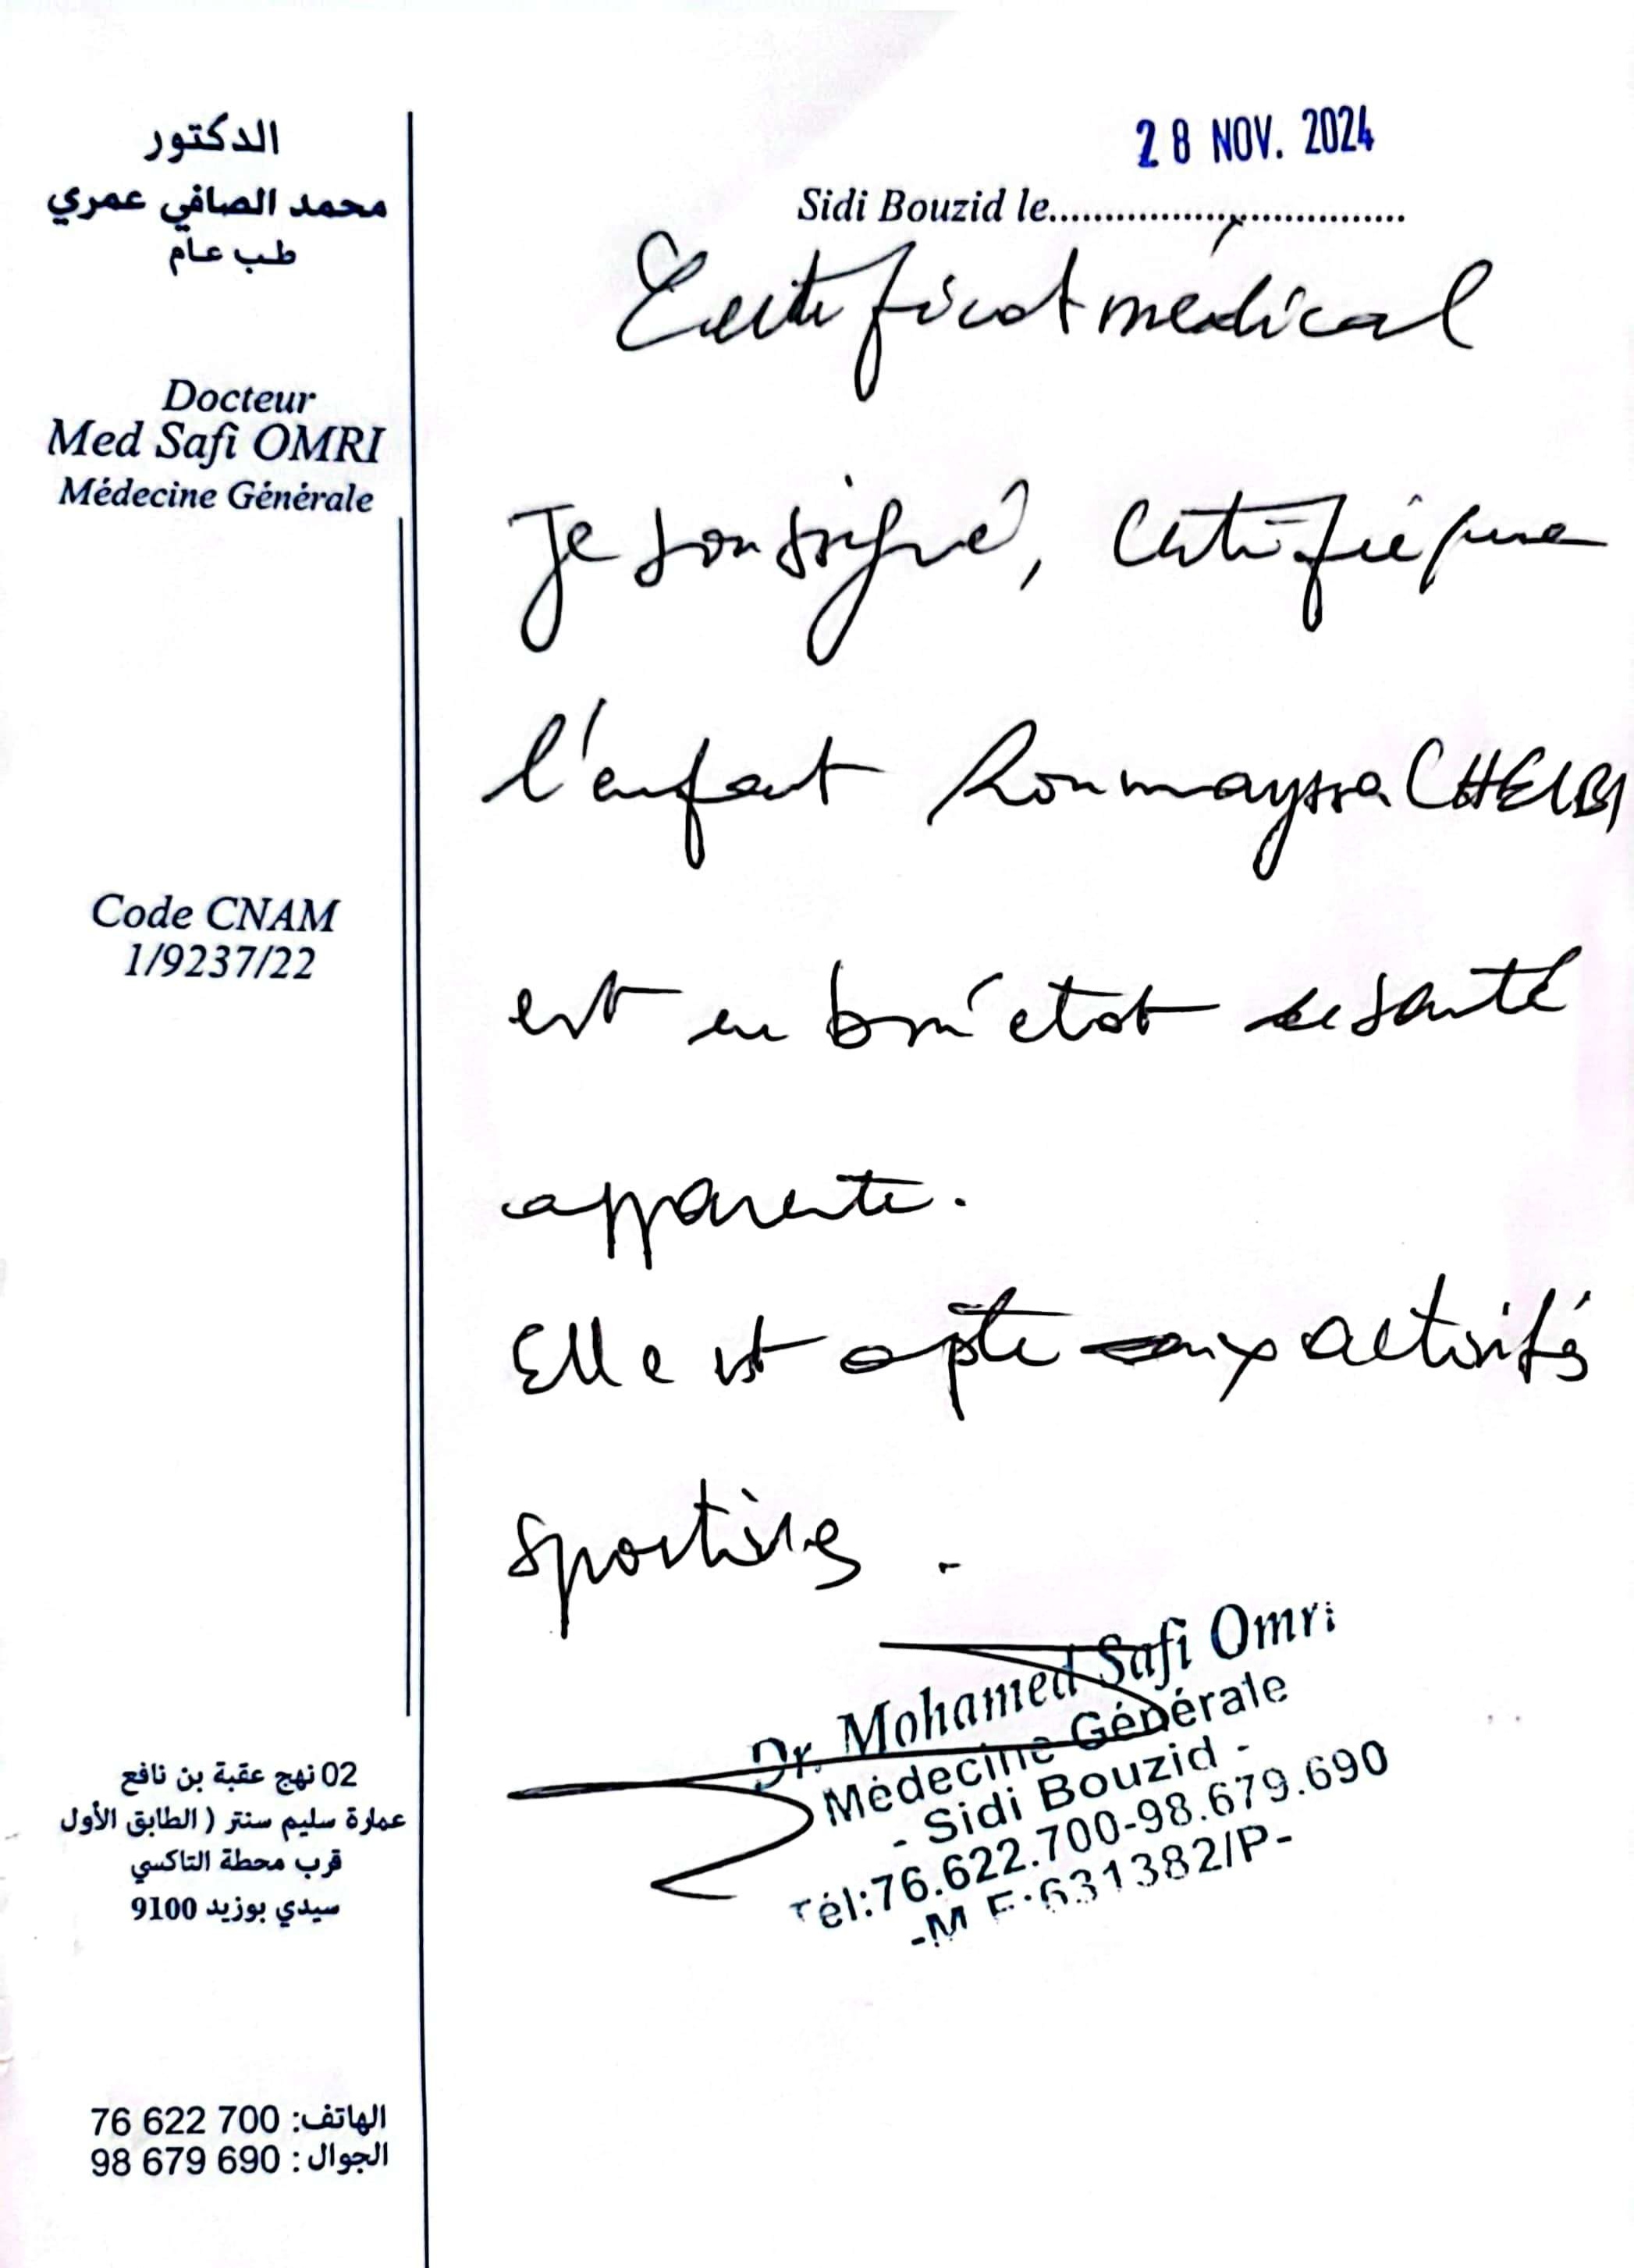 الدكتور
محمد الصافي عمري
طب عام
Docteur
Med Safi OMRI
Médecine Générale
Code CNAM
1/9237/22
02 نهج عقبة بن نافع
عمارة سليم سنتر ( الطابق الأول
قرب محطة التاكسي
سيدي بوزيد 9100
الهاتف: 76 622 700
الجوال : 98 679 690
28 NOV. 2024
Sidi Bouzid le...............................
Certificat médical
Je soussigné, certifie que
l'enfant Roumayssa CHELBI
est en bon état de santé
apparente.
Elle est apte aux activités
sportives .
Dr. Mohamed Safi Omri
Médecine Générale
- Sidi Bouzid -
Tél:76.622.700-98.679.690
-M F:631382/P-